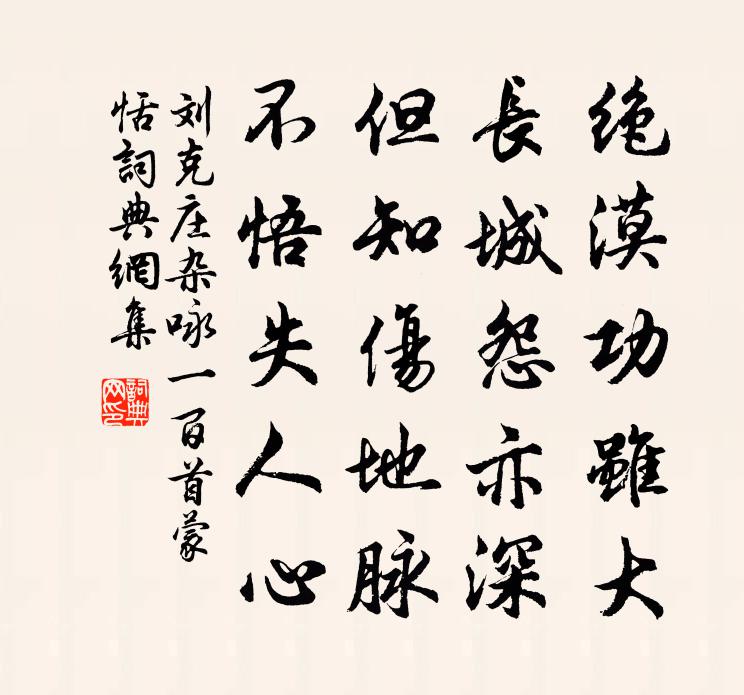 绝漠功雖大
長城怨亦深
但知傷地脉
不悟失人心
刘克庄杂咏一百首蒙
恬詞典網集
詞典
网印